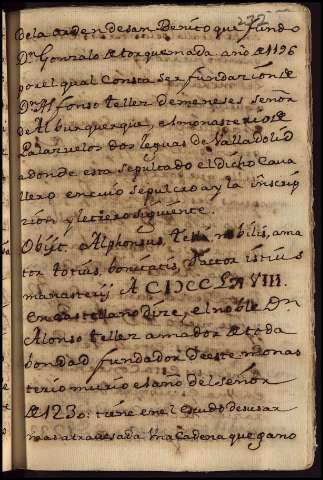 232
de la orden de san Benito que fundo
Dn Gonzalo de torquemada año de 1196
por el qual Consta Ser fundazion de
Dn Alfonso tellez de meneses señor
de Alburquerque, el monasterio de
Palazuelos dos leguas de Valladolid
adonde esta sepultado el dicho Cava
llero en cuio sepulcro ay la inscrip
zion y letrero siguiente.
Obijt. Alphonsus, telli nobilis, ama
tor totius, bonitatis, factor istius
monasterij A CIƆCCLXVIII.
En castellano dize, el noble Dn
Alonso tellez amador de toda
bondad fundador de este monas
terio murio el año del señor
de 1230: tiene en el escudo de sus ar
mas atravesada una Cadena que gano